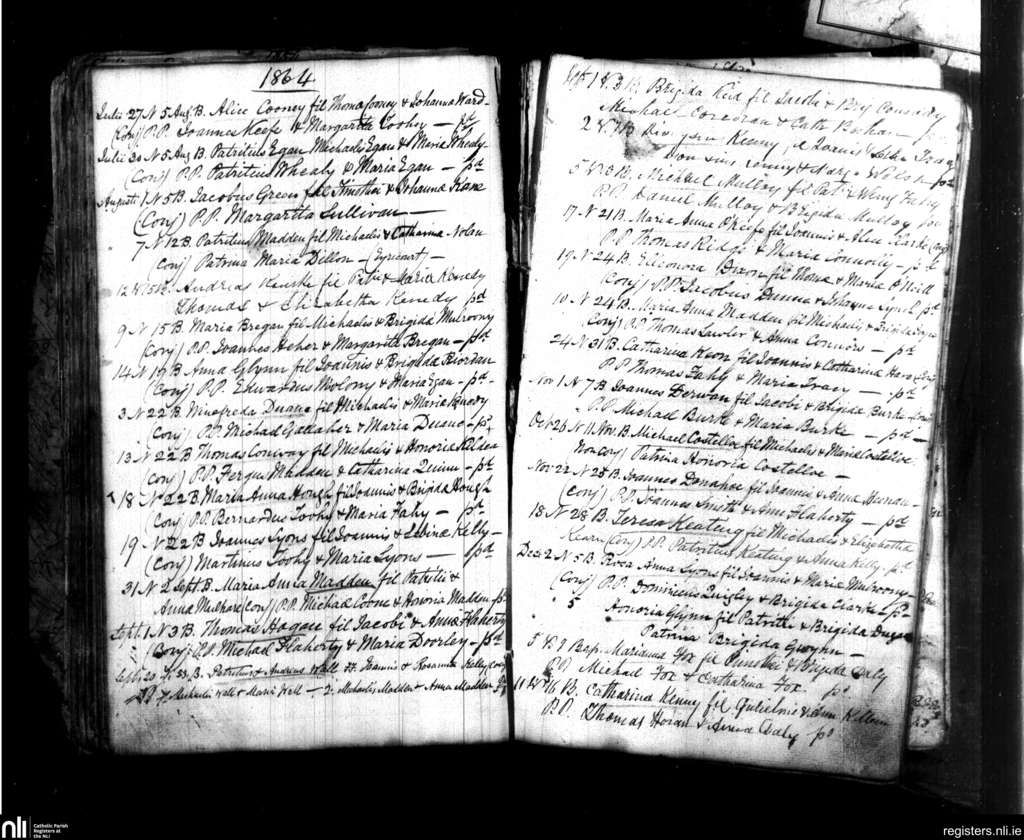 1864
Julii 27 N 5 Aug B. Alice Cooney fil Thoma Cooney & Johanna Ward
(Conj) P.P. Joannes Keefe & Margarita Toohy — pd
Julii 30 N 5 Aug B. Patritius Egan Michaelis Egan & Maria Whealy
(Conj) P.P. Patritius Whealy & Maria Egan — pd
Augusti 1 N 5 B. Jacobus Green fil Timothei & Johanna Kane
(Conj) P.P. Margarita Sullivan —
7 N 12 B. Patritius Madden fil Michaelis & Catharina Nolan
(Conj) Patrina Maria Dillon — (Eyrecourt) —
12 N 15 B. Andreas fil Pat & Maria Kenedy
Thomas & Elizabetha Kenedy pd
9 N 15 B. Maria Bregan fil Michaelis & Brigida Mulroony
(Conj) P.P. Joannes Heher & Margarita Bregan — pd
14 N 19 B. Anna Glynn fil Joannis & Brigida Riordan
(Conj) P.P. Edwardus Molony & Maria Egan — pd
3 N 22 B. Winefreda Duane fil Michaelis & Maria
(Conj) P.P. Michael Gallaher & Maria Duane — pd
13 N 22 B Thomas Conway fil Michaelis & Honoria Kilduea
(Conj) P.P. Fergus Madden & Catharina Quinn — pd
18 N 22 B Maria Anna Hough fil Joannis & Brigida Hough
(Conj) P.P. Bernardus Toohy & Maria Fahy — pd
19 N 22 B Joannes Lyons fil Joannis & Sabina Kelly —
(Conj) Martinus Toohy & Maria Lyons — pd
31 N 2 Sept B. Maria Anna Madden fil Patritii &
Anna Mulhare (Conj) P.P. Michael Coone & Honoria Madden pd
Sept 1 N 3 B. Thomas Hogan fil Jacobi & Anna Flaherty
(Conj) P.P. Michael Flaherty & Maria Doorley — pd
Sept 20 N 23 B. Patritius & Andreas Wall ff. Joannis & Rosanna Kelly (Conj)
PP. 1 Michaelis Wall & Maria Wall — 2. Michaelis Madden & Anna Madden
Sept 1 N 3 B. Brigida Reid fil Jacobi & Bry Consady
Michael Corcoran & Cath
2 N 7 B Kenny
& Mary Walsh pd
5 N 8 B. Michael Mulloy fil Pat & Winy Fahy
P.P. Daniel Mulloy & Brigida Mulloy pd
17 N 21 B. Maria Anna O'Keefe fil Joannis & Alice (Conj)
P.P Thomas Ridge & Maria Connolly — pd
19 N 24 B. Elleonora Dixon fil Thoma & Maria O'Neill
(Conj) P.P. Jacobus Dunne & Johanna Lynch pd
10 N 24 B. Maria Anna Madden fil Michaelis & Brigida
(Conj) P.P Thomas Lawler & Anna Connors — pd
24 N 31 B. Catharina Keon fil Joannis & Catharina Horan (Conj)
P.P Thomas Fahy & Maria Tracy — pd
Nov 1 N 7 B Joannes Derwan fil Jacobi & Brigida Burke (Conj)
P.P. Michael Burke & Maria Burke — pd —
Oct 26 N 11 Nov. B. Michael Costelloe fil Michaelis & Maria Costelloe
Non Conj Patrina Honoria Costelloe —
Nov 22 N 25 B. Joannes Donahoe fil Joannis & Anna Neenan
(Conj) P.P Joannes Smith & Ann Flaherty — pd
18 N 28 B. Teresa Keating fil Michaelis & Elizabetha
Kearn (Conj) P.P. Patritius Keating & Anna Kelly — pd
Dec 2 N 5 B. Rosa Anna Lyons fil Joannis & Maria Mulroony
(Conj) P.P. Dominicus Quigley & Brigida Clarke — pd
5 Honoria Glynn fil Patritii & Brigida Dugan
Patrina Brigida
5 N 9 Bap. Marianna Fox fil & Brigida Daly
P.P. Michael Fox & Catharina Fox. pd
11 N 16 B. Catharina Kenny fil Gulielmi & Ann
P.P. Thomas Horan & Anna Daly pd
nli
Catholic Parish
Registers at
the NLI
registers.nli.ie